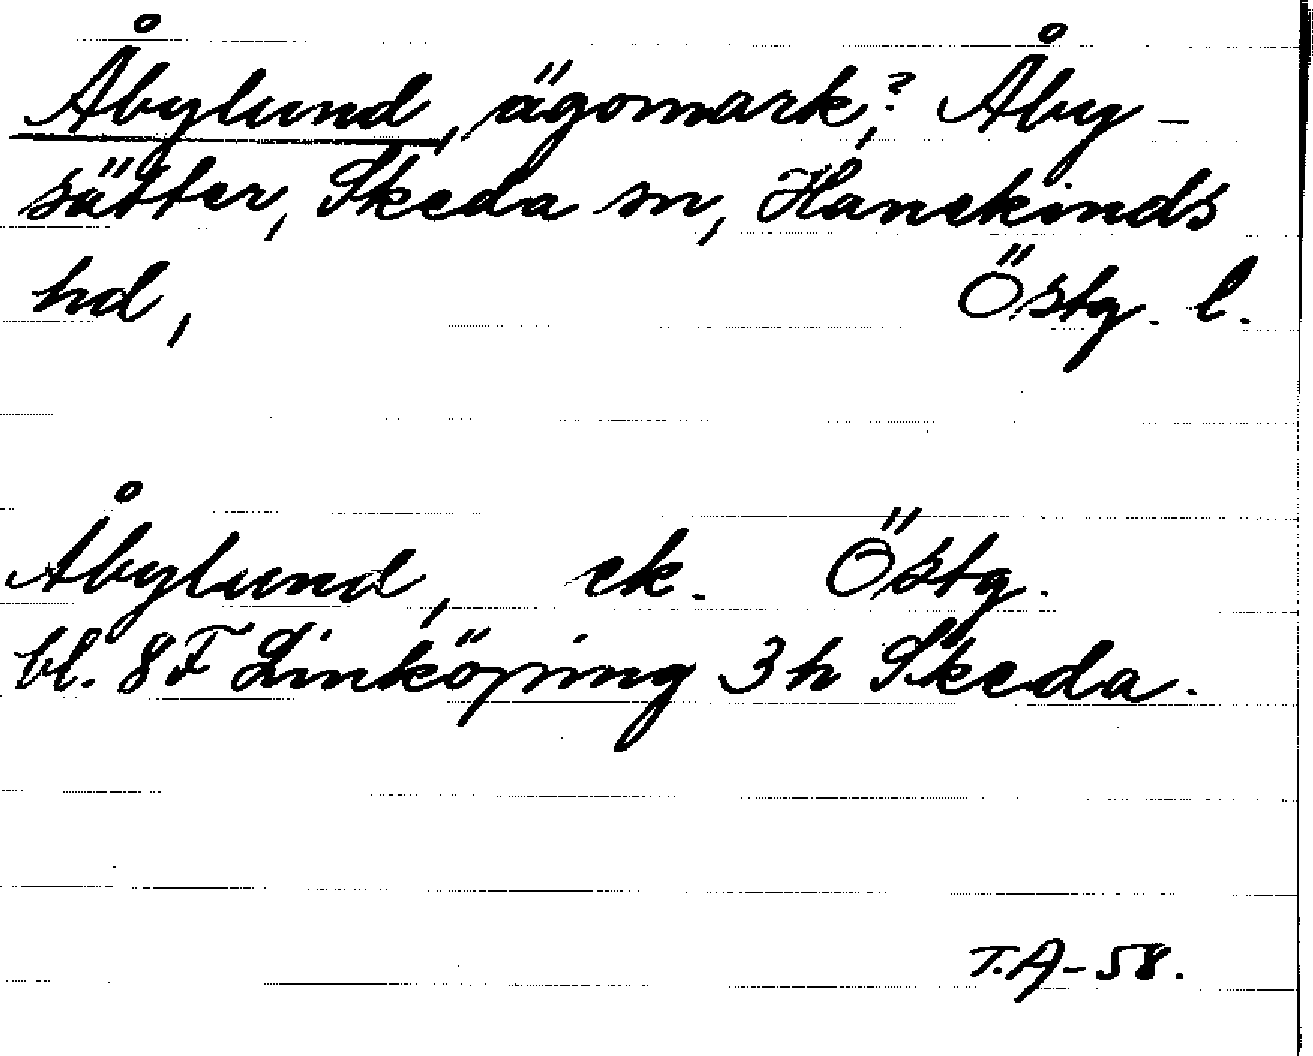 Åbylund, ägomark,? Åby-
sätter, Skeda sn, Hanekinds
hd, Östg. l.
Åbylund, ek. Östg.
bl. 8F Linköping 3h Skeda.
T.A-58.